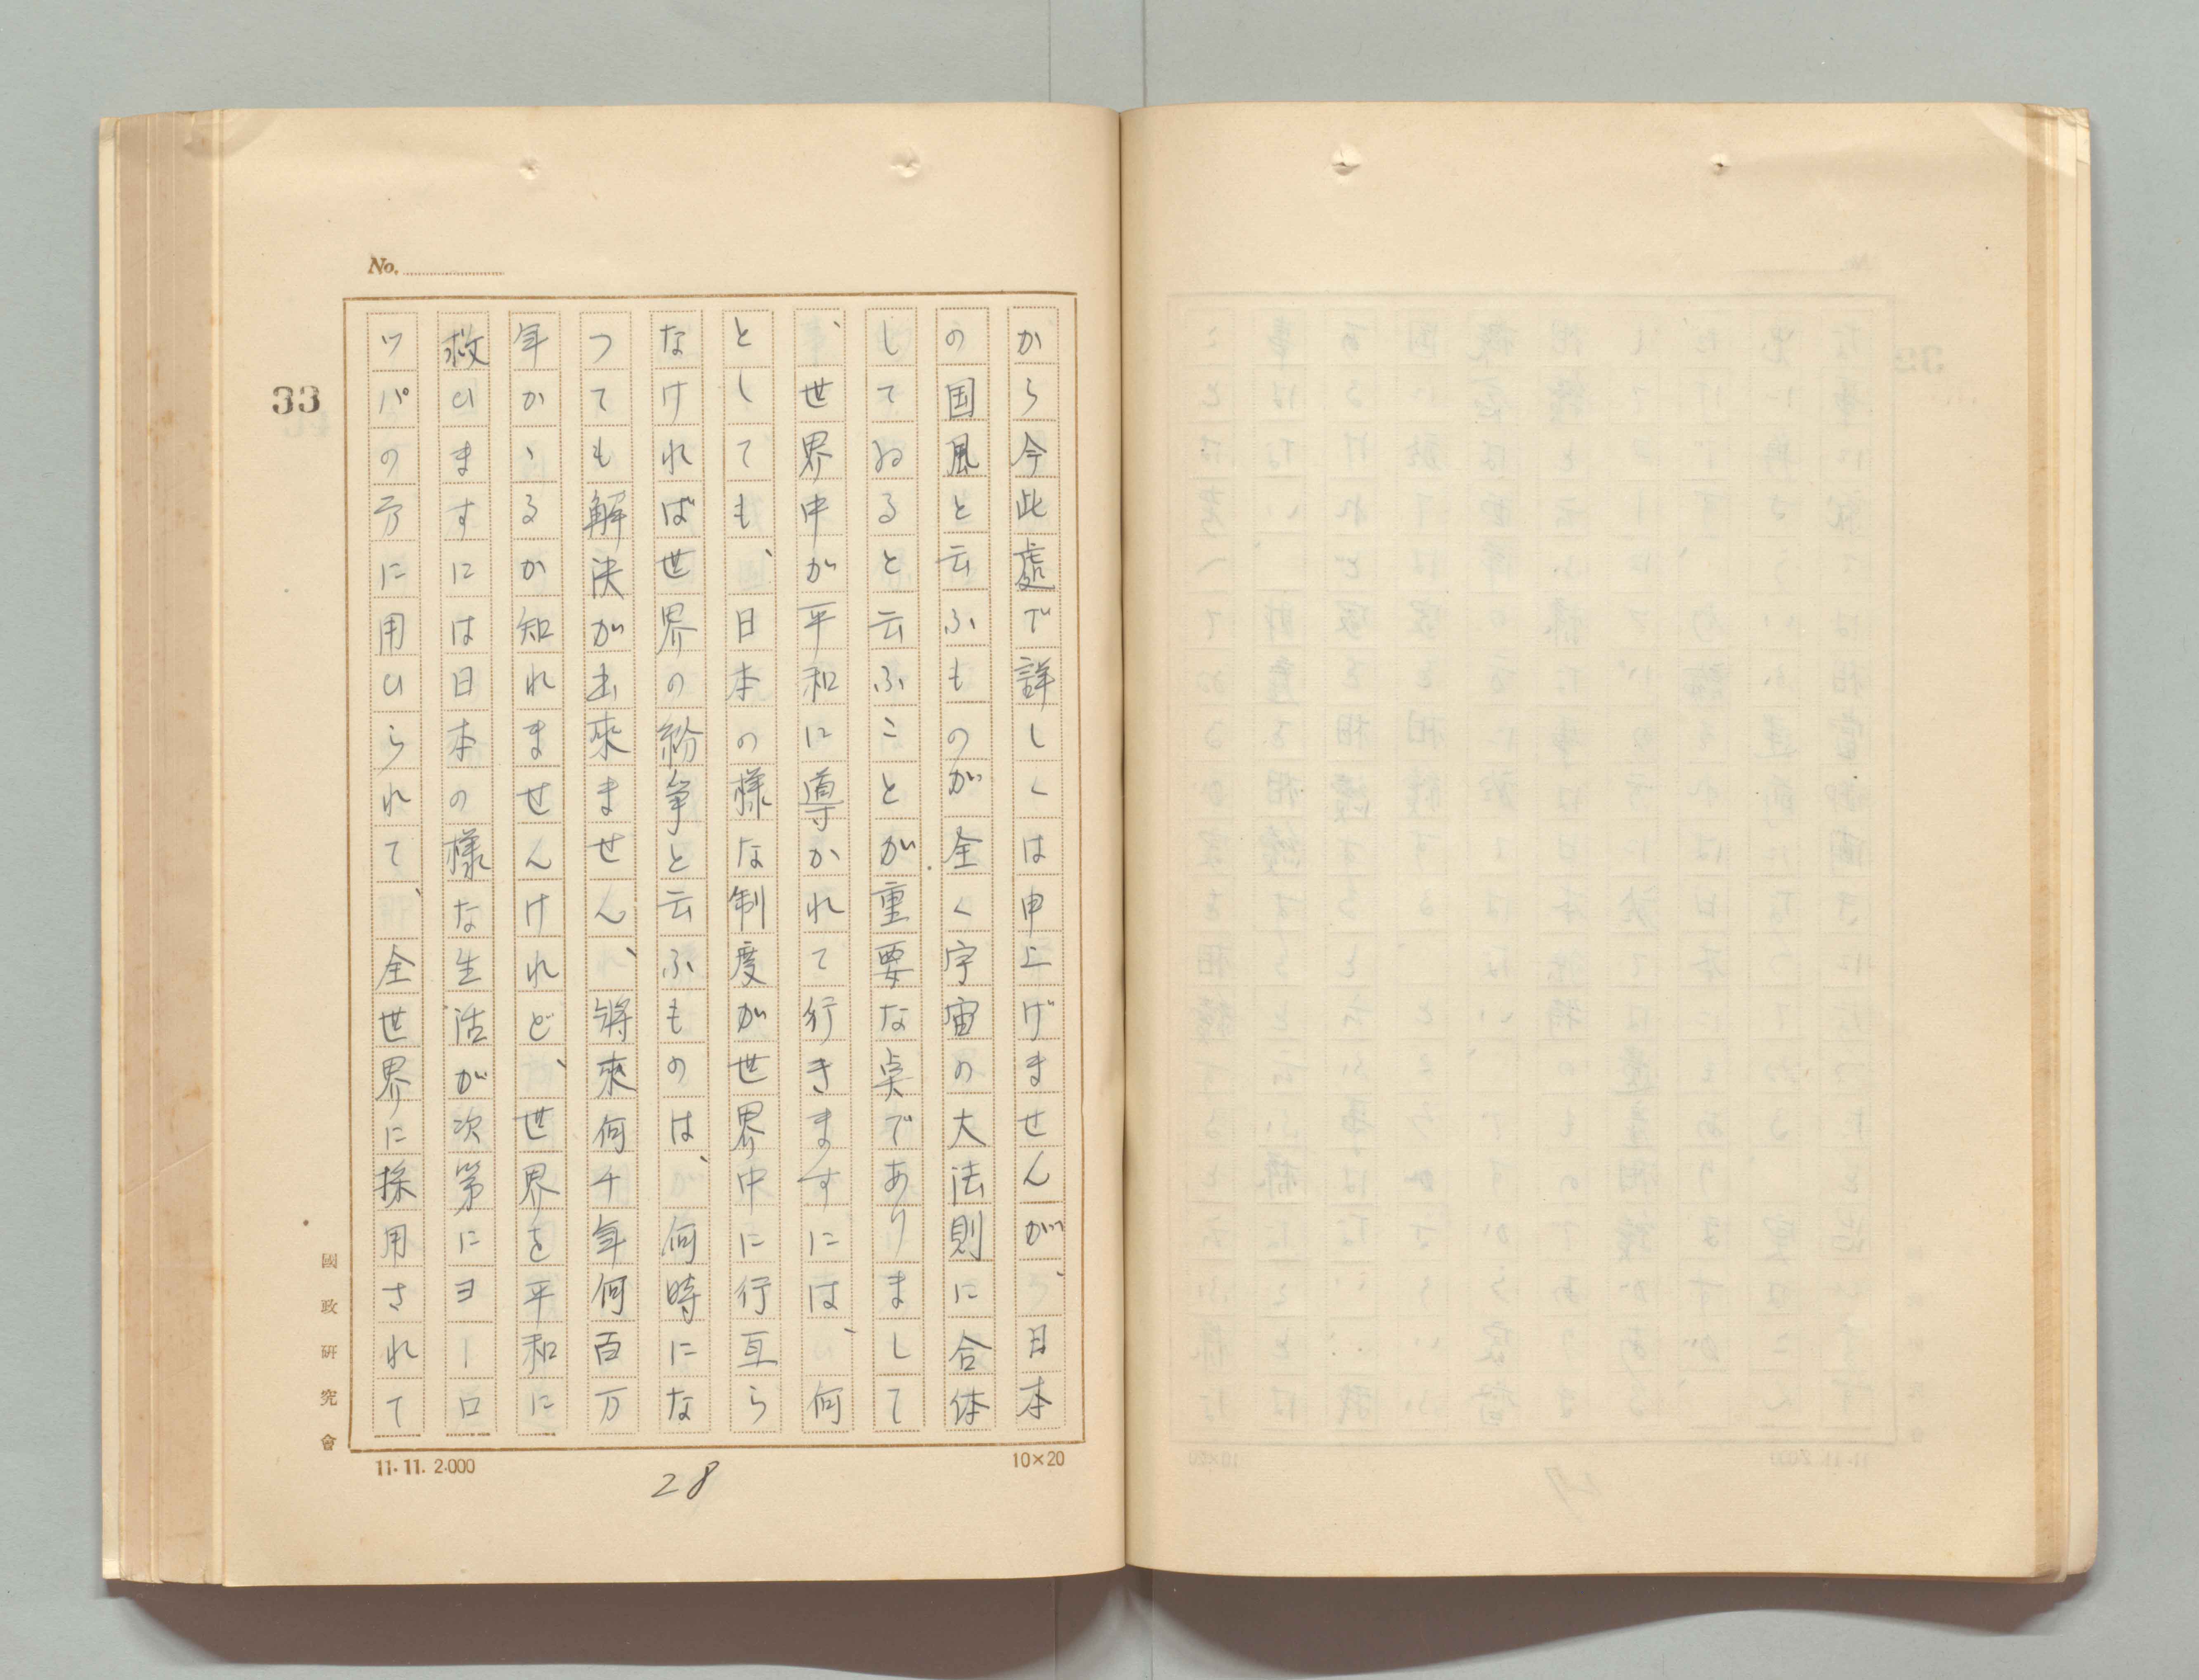 No.
33
から今此處で詳しくは申上げませんが、日本
の国風と云ふものが全く宇宙の大法則に合体
してゐると云ふことが重要な点でありまして
、世界中が平和に導かれて行きますには、何
としても、日本の様な制度が世界中に行亙ら
なければ世界の紛争と云ふものは、何時にな
つても解決が出來ません、將來何千年何百万
年かゝるか知れませんけれど、世界を平和に
救ひますには日本の様な生活が次第にヨーロ
ツパの方に用ひられて、全世界に採用されて
國政研究會
10×20
11.11. 2.000
28